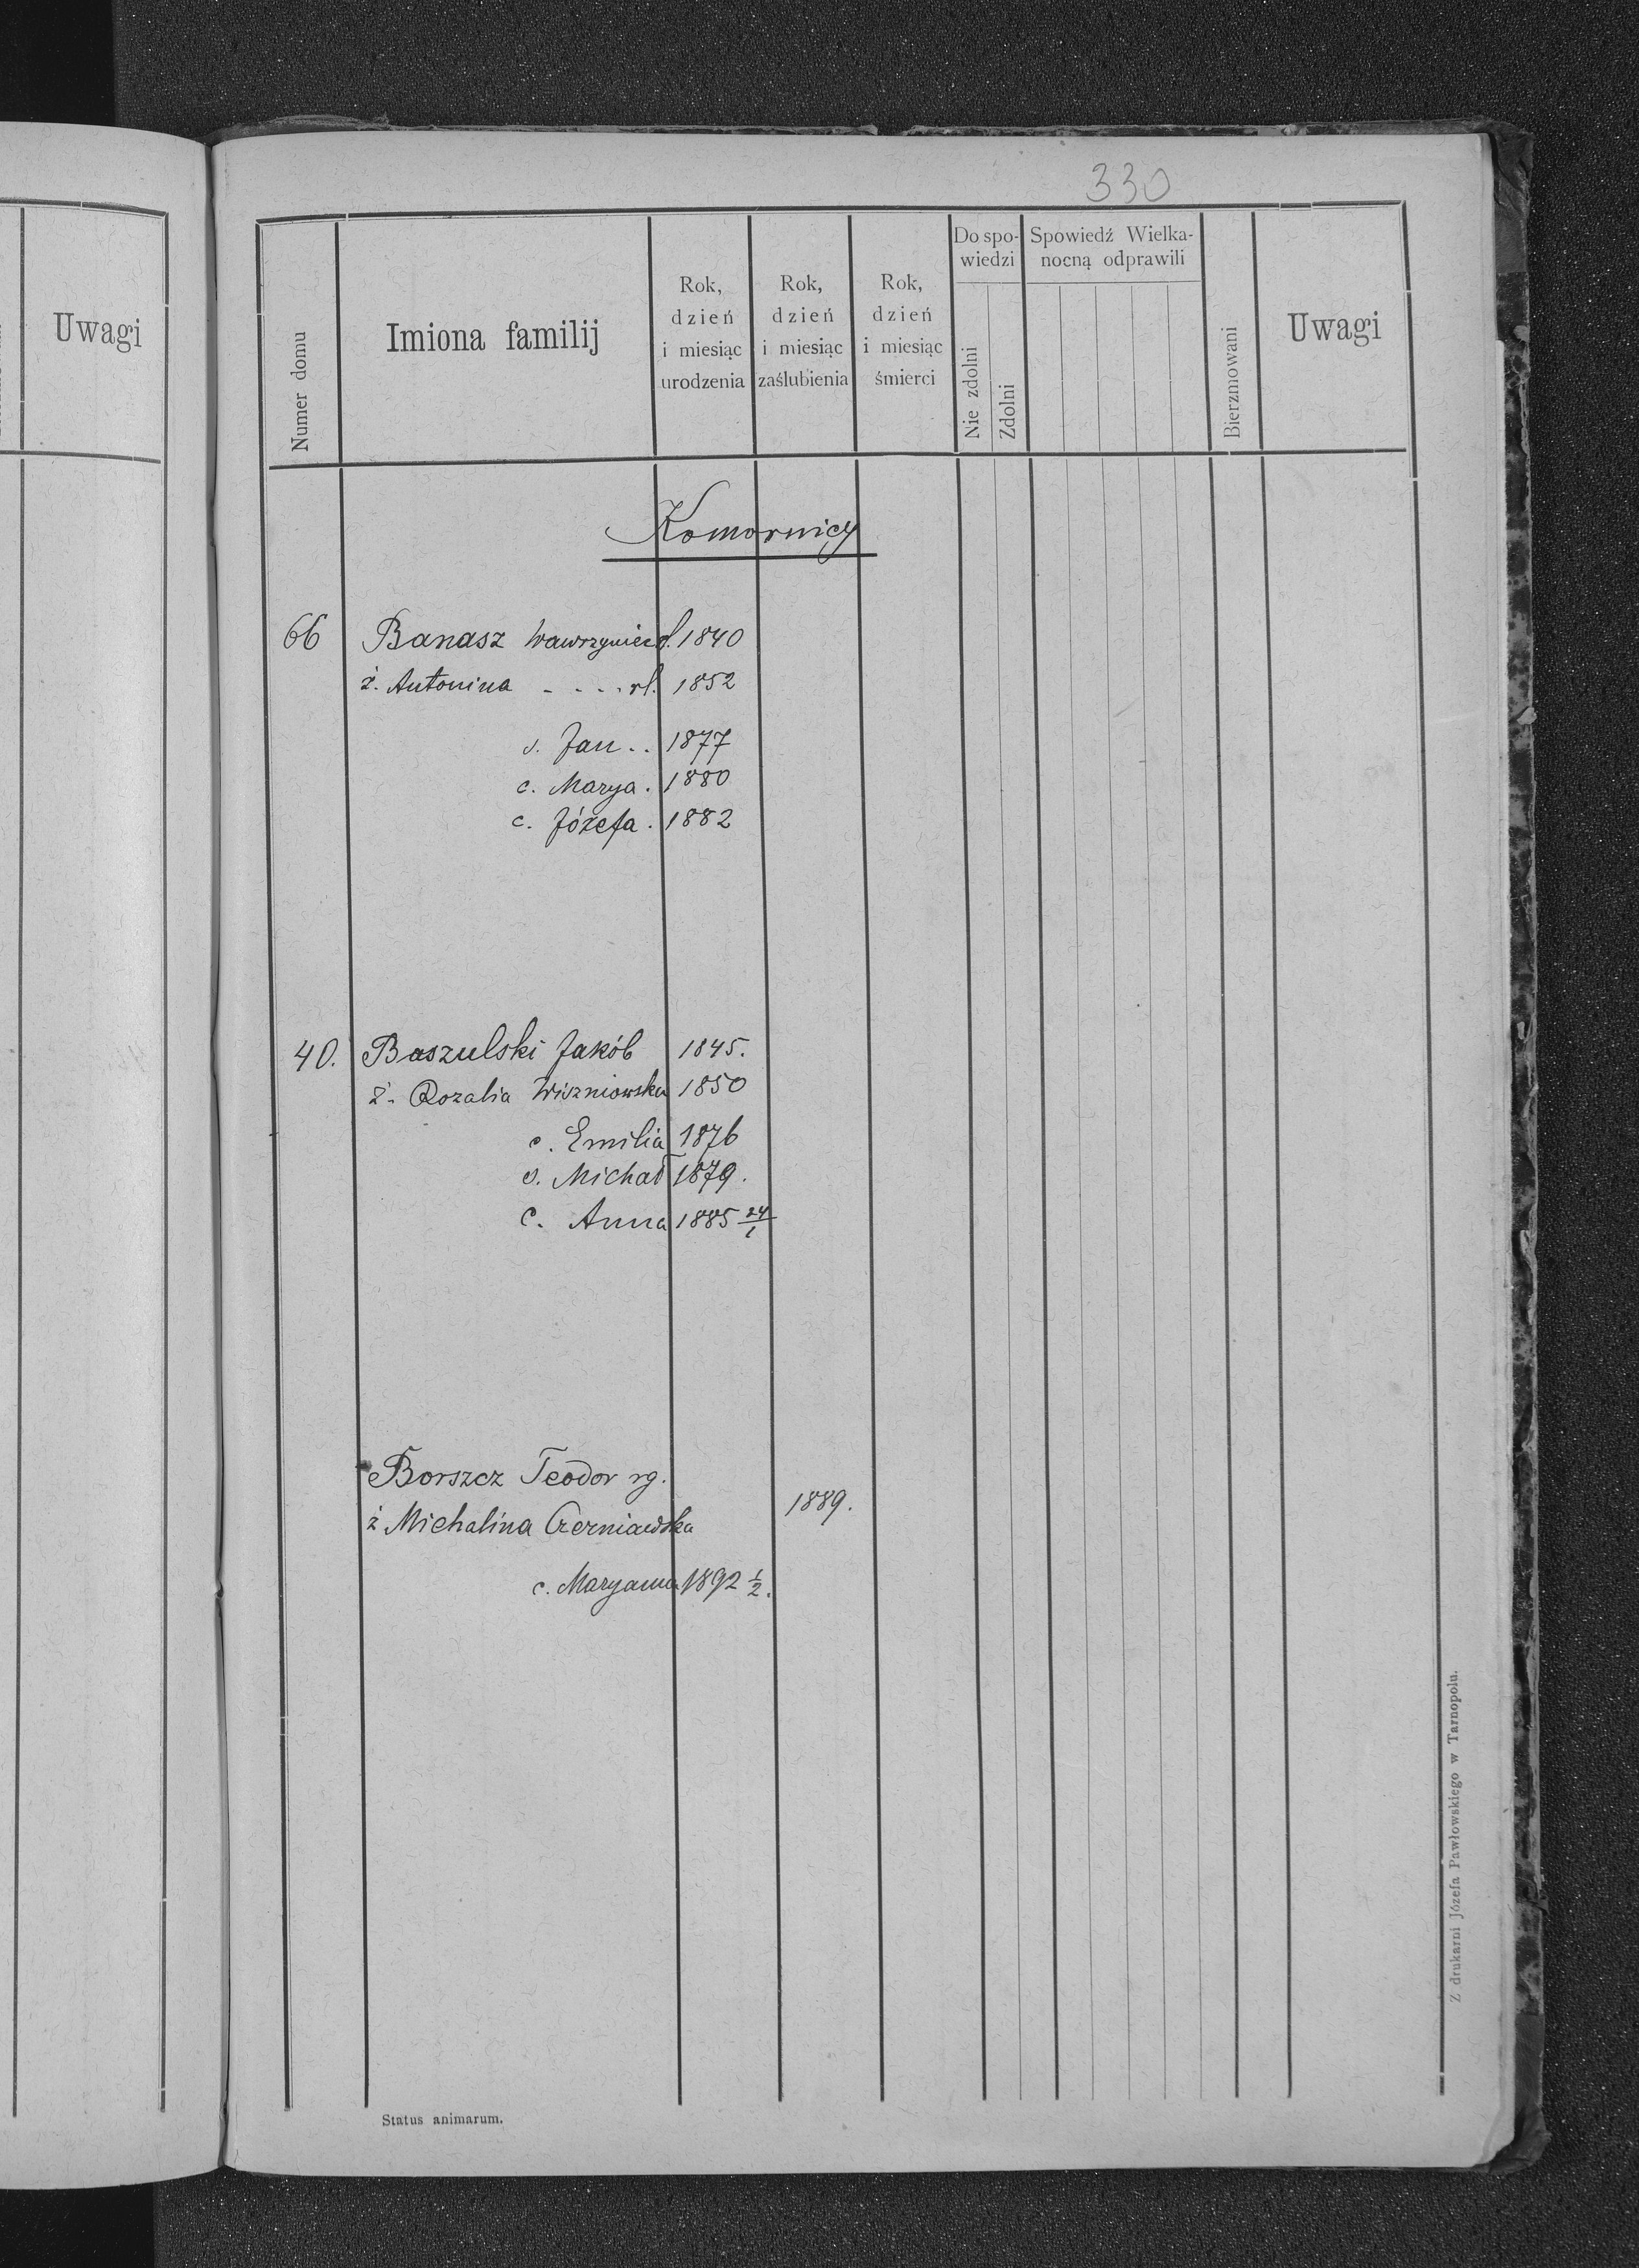 330
Uwagi
Numer domu
Imiona familij
Rok, dzień i miesiąc urodzenia
Rok, dzień i miesiąc zaślubienia
Rok, dzień i miesiąc śmierci
Do spo-
wiedzi
Nie zdolni
Zdolni
Spowiedź Wielka-
nocną odprawili
Bierzmowani
Uwagi
Komornicy
66 Banasz Wawrzyniec 1840
ż. Antonina - . . . rl. 1852
s. Jan . . 1877
c. Marya . 1880
c. Józefa . 1882
40. Baszulski Jakób 1845.
ż. Rozalia Wiszniowska 1850
c. Emilia 1876
s. Michał 1879.
c. Anna 1885 24/1
Borszcz Teodor rg.
1889.
ż Michalina Czerniawska
c. Maryanna 1892 1/2.
Status animarum.
Z drukarni Józefa Pawłowskiego w Tarnopolu.